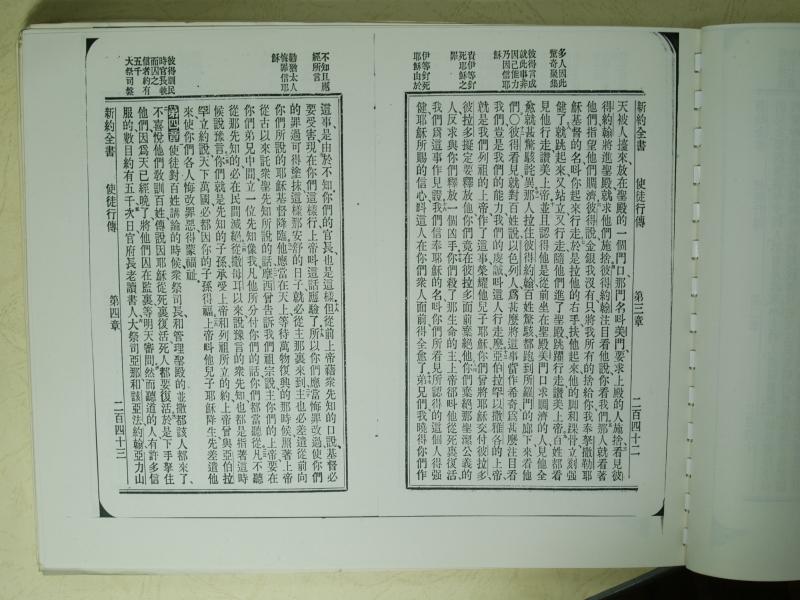 新約全書 使徒行傳 第三章 二百四十二
多人因此驚奇聚集
彼得言成就此事非因己能力乃因信耶穌
責伊等釘死耶穌之罪
伊等釘死耶穌由於
天被人擡來放在聖殿的一個門口那門名呌美門要求上殿的人施捨看見彼
得約翰將進聖殿就求他們施捨彼得約翰注目看他說你看我們那人就看著
他們指望他們賙濟彼得說金銀我沒有只將我所有的捨給你我奉拏撒勒耶
穌基督的名呌你起來行走於是拉他的右手扶他起來他的脚和踝骨立刻強
健了就跳起來又站立又行走隨他們進了聖殿跳躍行走讚美上帝百姓都看
見他行走讚美上帝並且認得他是從前坐在聖殿美門口求賙濟的人見他全
愈就甚驚駭詫異那人拉住彼得約翰百姓驚駭都跑到所羅門的廊下來看他
們○彼得看見就對百姓說以色列人爲甚麽將這事當作希奇爲甚麽注目看
我們豈是我們的能力我們的虔誠呌這人行走麽亞伯拉罕以撒雅各的上帝
就是我們列祖的上帝作了這事榮耀他兒子耶穌你們曾將耶穌交付彼拉多
彼拉多擬定要釋放他你們竟在彼拉多面前棄絕他你們棄絕那聖潔公義的
人反求與你們釋放一個凶手你們殺了那生命的主上帝卻呌他從死裏復活
我們爲這事作見證我們信奉耶穌的名呌你們所看見所認得的這個人得强
健耶穌所賜的信心呌這人在你們衆人面前得全愈了弟兄們我曉得你們作
不知且應經所言
勸猶太人悔罪信耶穌
彼得訓民時官長執而囚之
信者約有五千
大祭司盤
這事是由於不知你們的官長也是這樣但從前上帝藉衆先知的口說基督必
要受害現在你們這樣行上帝呌這話應驗了所以你們應當悔罪改過使你們
的罪過可得塗抹這樣那安舒的日子就必從主那裏來到主也必差遣從前向
你們所說的耶穌基督降臨他應當在天上等待萬物復興的那時候照著上帝
從古以來託衆聖先知所說的話摩西曾告訴我們祖宗說主你們的上帝要在
你們弟兄中間立一位先知像我凡他所分付你們的話你們都當聽從凡不聽
從那先知的必在民間滅絕從撒母耳以來說豫言的衆先知也都是指著這時
候說豫言你們就是先知的子孫承受上帝和列祖所立的約上帝曾與亞伯拉
罕立約說天下萬國必都因你的子孫得福上帝呌他兒子耶穌降生先差遣他
來使你們各人悔改罪惡得蒙福祉
第四章使徒對百姓講論的時候衆祭司長和管理聖殿的並撒都該人都來了
不喜悅他們敎訓百姓傳說因耶穌從死裏復活死人都要復活於是下手拏住
他們因爲天已經晚了將他們囚在監裏等明天審問然而聽道的人有許多信
服的數目約有五千次日官府長老讀書人大祭司亞那和該亞法約翰亞力山
新約全書 使徒行傳 第四章 二百四十三